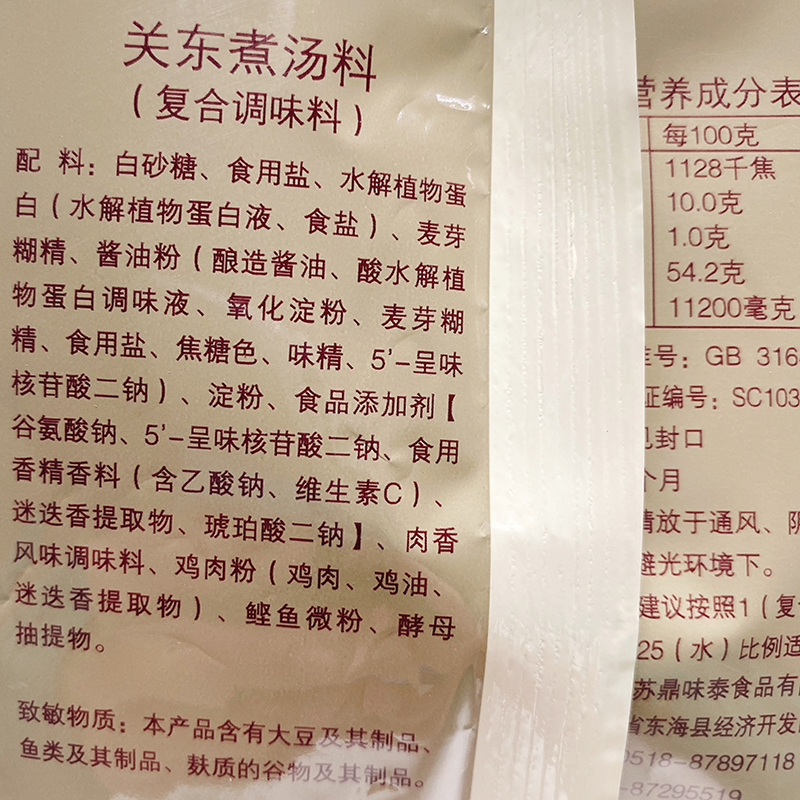 关东煮汤料
（复合调味料）
配 料：白砂糖、食用盐、水解植物蛋
白（水解植物蛋白液、食盐）、麦芽
糊精、酱油粉（酿造酱油、酸水解植
物蛋白调味液、氧化淀粉、麦芽糊
精、食用盐、焦糖色、味精、5'-呈味
核苷酸二钠）、淀粉、食品添加剂【
谷氨酸钠、5'-呈味核苷酸二钠、食用
香精香料（含乙酸钠、维生素C）、
迷迭香提取物、琥珀酸二钠】、肉香
风味调味料、鸡肉粉（鸡肉、鸡油、
迷迭香提取物）、鲣鱼微粉、酵母
抽提物。
致敏物质：本产品含有大豆及其制品、
鱼类及其制品、麸质的谷物及其制品。
营养成分表
每100克
1128千焦
10.0克
1.0克
54.2克
11200毫克
号：GB 316
证编号：SC103
见封口
个月
请放于通风、阴
避光环境下。
建议按照1（复
25（水）比例适
苏鼎味泰食品有
省东海县经济开发
0518-87897118
-87295519